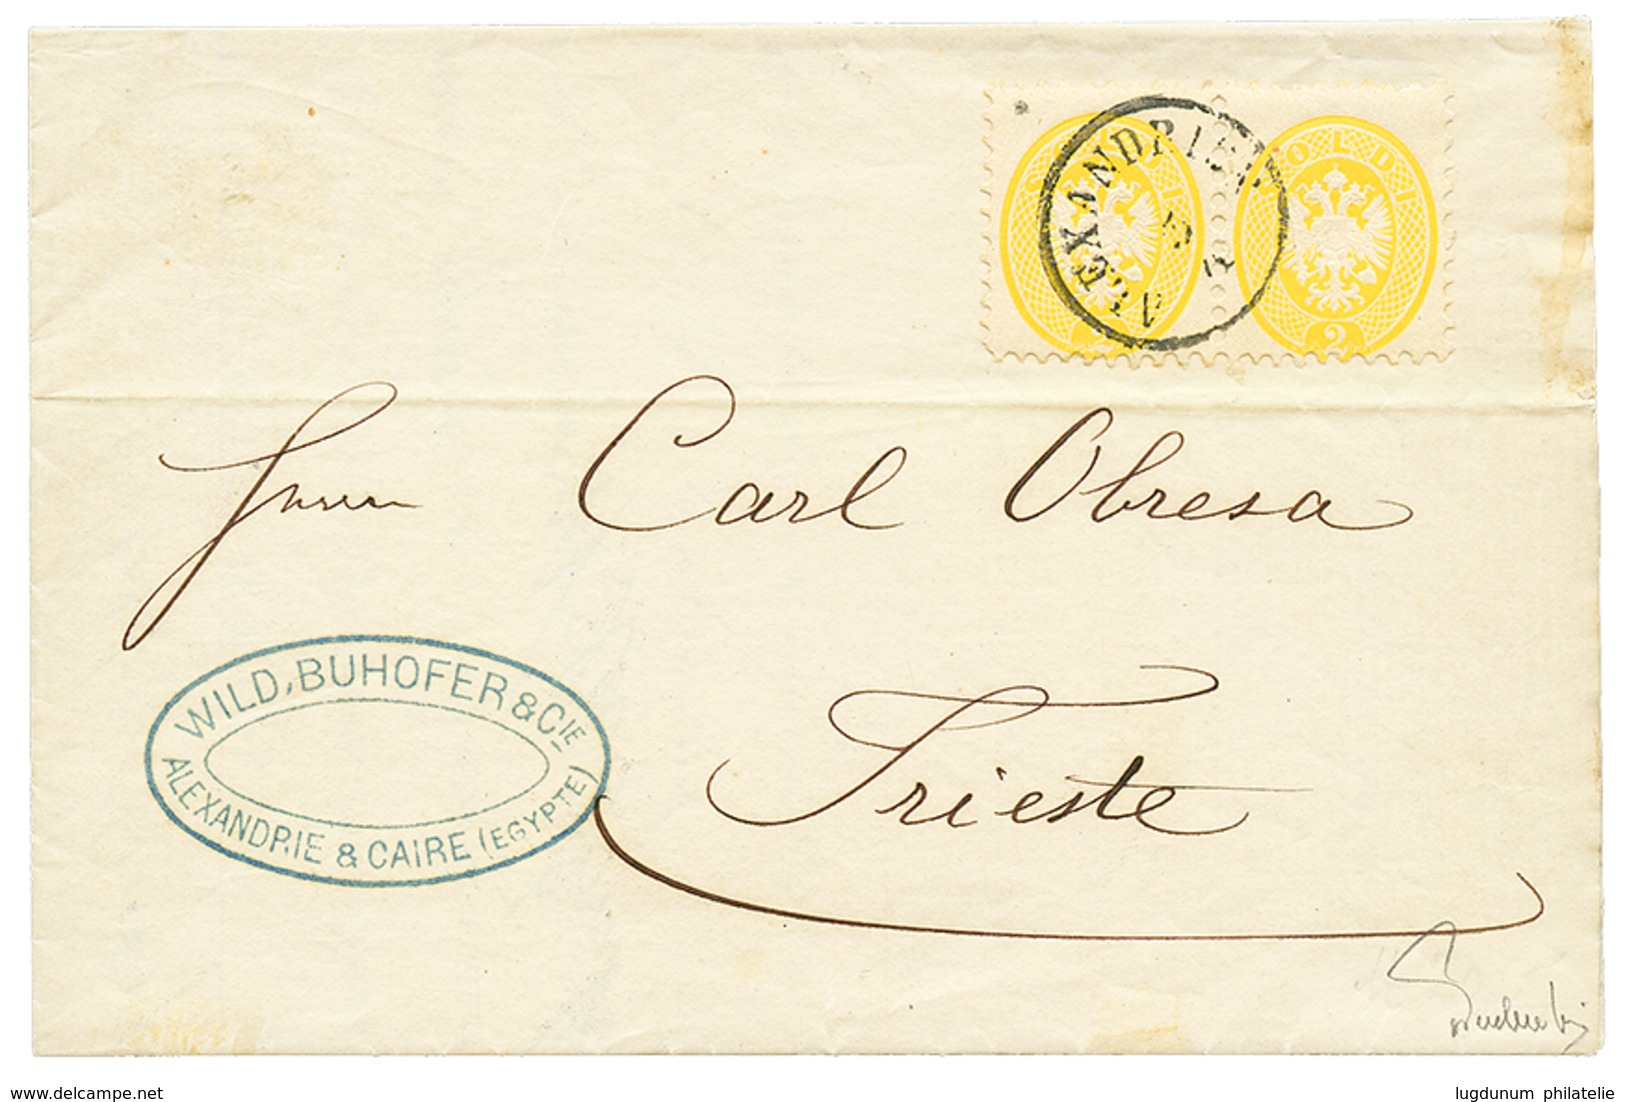 SOLDI
SOLDI
2
2
ALEXANDRIEN
Herrn Carl Obresa
Trieste
WILD, BUHOFER & CIE
ALEXANDRIE & CAIRE (EGYPTE)
www.delcampe.net
lugdunum philatelie